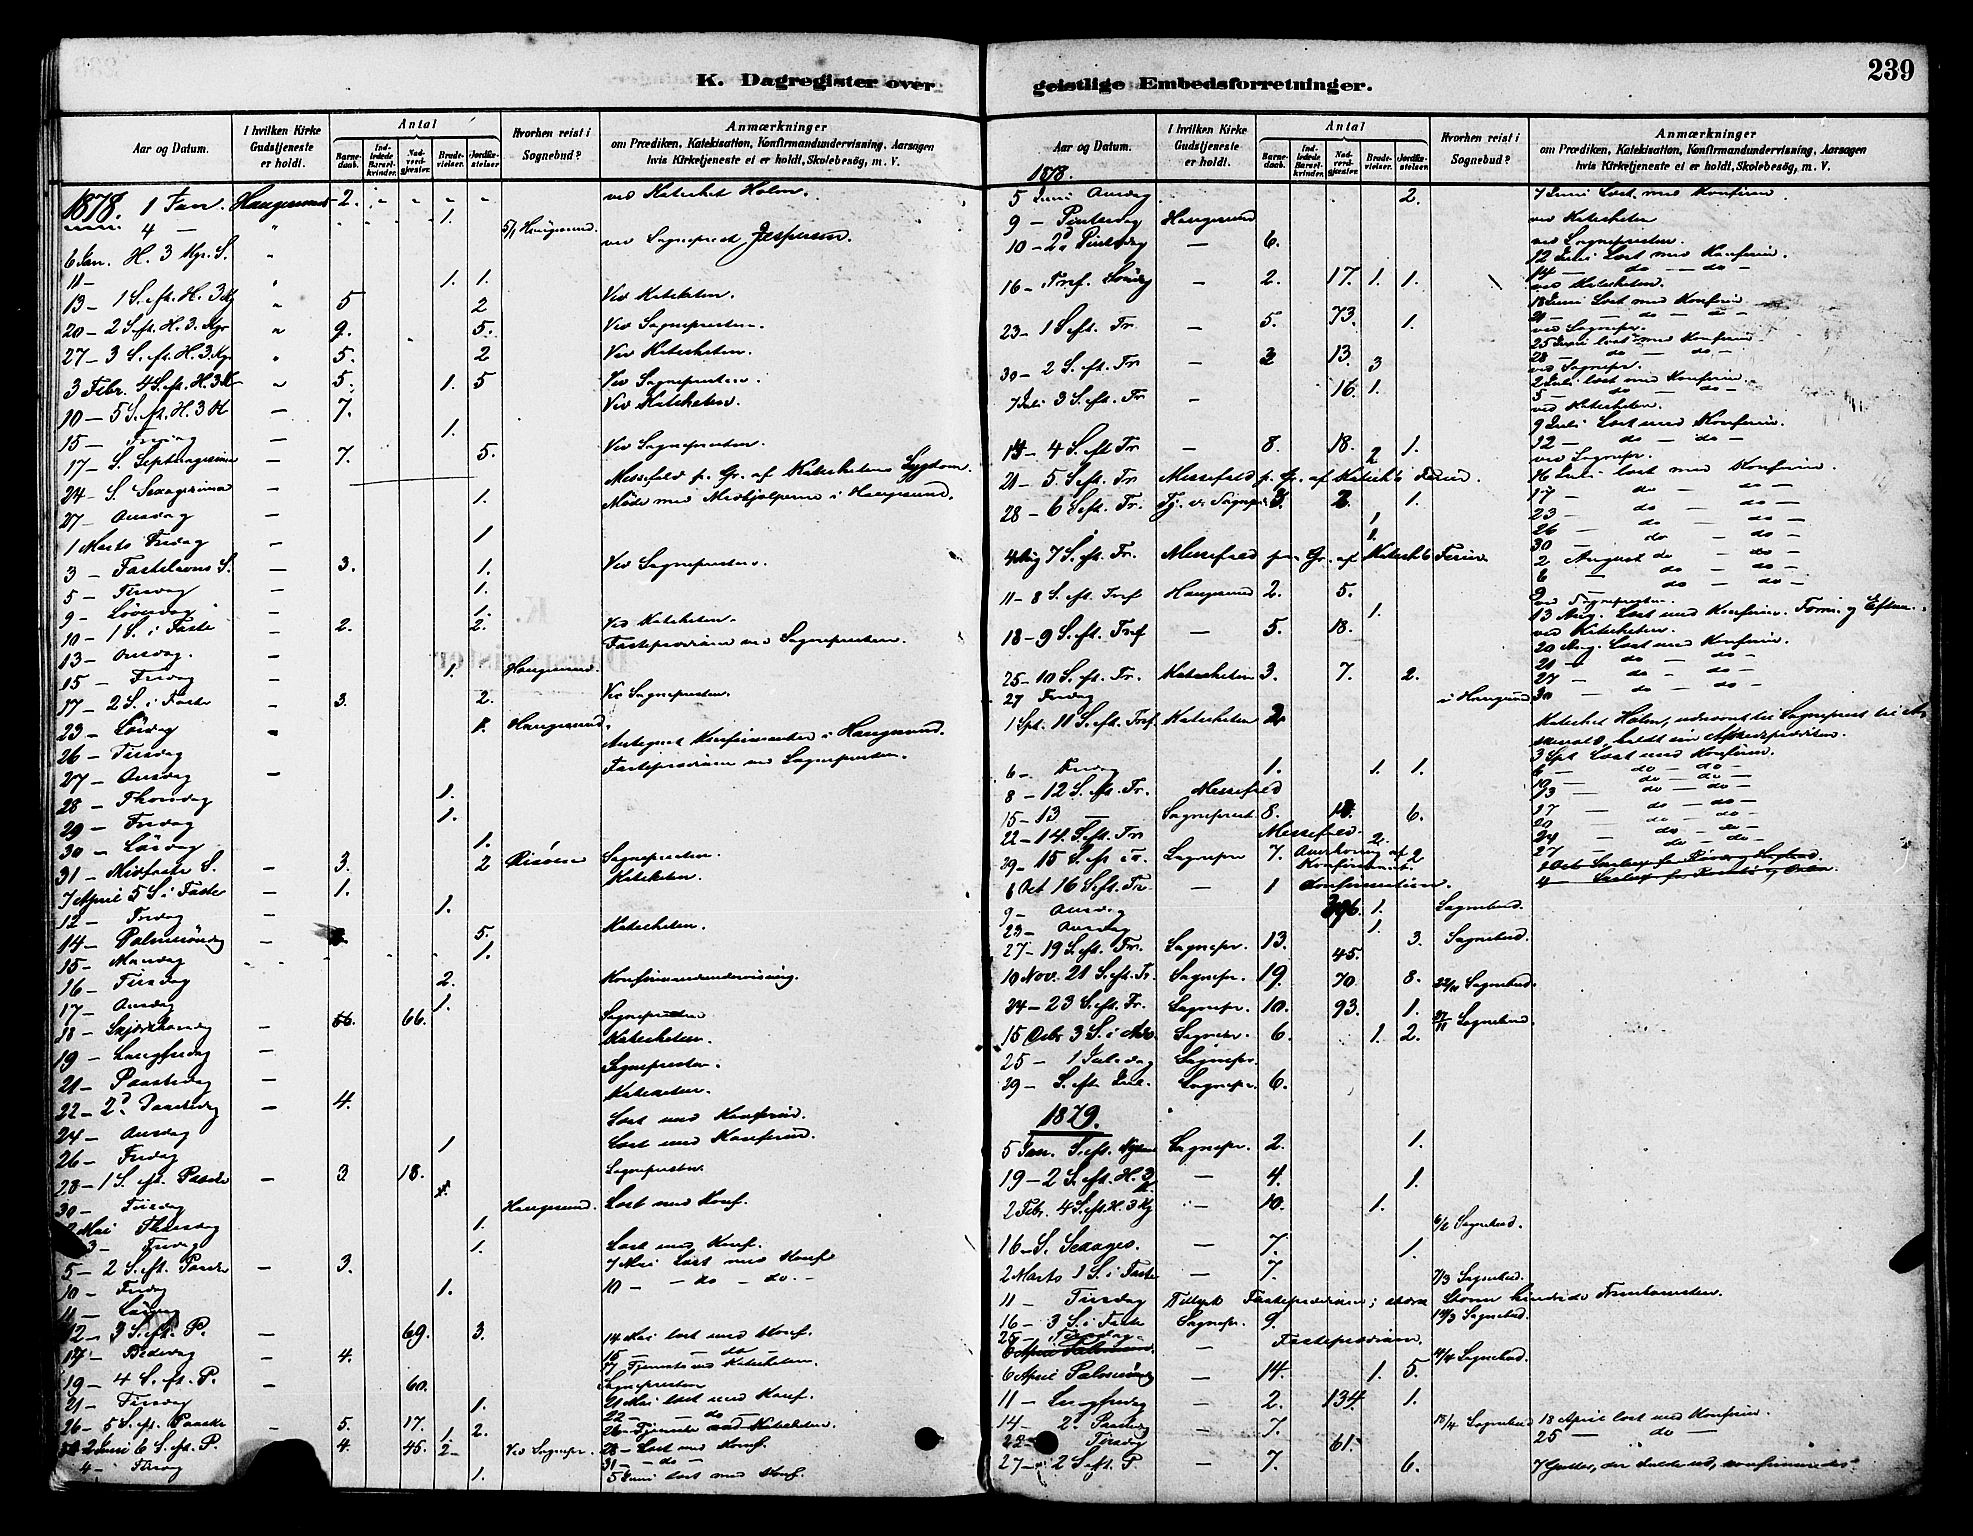 K. Dagregister over
Aar og Datum.
I hvilken Kirke Gudstjeneste er holdt.
Antal
Barnedaab.
Indledede Barselkvinder.
Nadverdgjæster.
Brudevielser.
Jordfæstelser.
Hvorhen reist i Sognebud?
Anmærkninger
om Prædiken, Katekisation, Konfirmandundervisning, Aarsagen hvis Kirketjeneste ei er holdt, Skolebesøg, m. V.
1878. 1 Jan. Haugesund 2. ved Katechet Holm.
4 — 1. 5/1 Haugesund
6 Jan. H. 3 Kgr. S. ved Sognepræst Jespersen.
11 — 1. 1.
13 — 1 S. eft. H. 3 Kg 5 2 Ved Katecheten.
20 — 2 S. eft. H. 3. Kgr 9. 5. Ved Sognepresten.
27 — 3 S. eft. H. 3 Kgr. 5. 2 Ved Katecheten.
3 Febr. 4 S. eft. H. 3 K 5. 1. 5 Ved Sognepresten.
10 — 5 S. eft. H. 3 K — 7. Ved Katecheten.
15 — Fredag — 1.
17 — S. Septuagesima — 7. 5. Ved Sognepresten.
24 — S. Sexagesima — Messefald p. Gr. af Katechetens Sygdom.
27 — Onsdag — 1. Møde med Medhjelperne i Haugesund.
1 Marts Fredag — 1
3 — Fastelavns S. — 3. 1. Ved Sognepresten.
5 — Tirsdag — 1.
9 — Lørdag — 1.
10 — 1 S. i Faste 2. 2. Ved Katecheten.
13 — Onsdag. — Fasteprædiken ved Sognepresten.
15 — Fredag — 1. Haugesund.
17 — 2 S. i Faste — 3. 2. Ved Sognepresten.
23 — Lørdag — 1. Haugesund.
26 — Tirsdag — Antegnet Konfirmanter i Haugesund.
27 — Onsdag — Fasteprædiken ved Sognepresten.
28 — Thorsdag 1.
29 — Fredag 1.
30 — Lørdag 1.
31 — Midfaste S. — 3. 2 Risøen Sognepresten.
7 April 5 S. i Faste — 1. Katecheten.
12 — Fredag — 1.
14 — Palmesøndag — 5. Katecheten.
15 — Mandag 1.
16 — Tirsdag 2. Konfirmandundervisning.
17 — Onsdag 1.
18 — Skjærthorsdag — 66. Sognepresten
19 — Langfredag — Katecheten.
21 — Paaskedag — Sognepresten.
22 — 2d. Paaskedag — 4. Katecheten.
24 — Onsdag Læst med Konfirm.
26 — Fredag 1 Læst med Konfirm.
28 — 1 S. eft. Paaske — 3 18. Sognepresten
30 — Tirsdag Haugesund. Læst med Konf.
2 Mai Thorsdag 1.
3 — Fredag 1. Læst med Konf.
5 — 2 S. eft. Paaske — 3. 7 Mai Læst med Konf
10 — Fredag 1. 10 — — do — do. —
11 — Lørdag
12 — 3 S. eft. P. — 69. 3. 14 Mai læst med Konf.
17 — Bededag — 4. 15 — — do —
17 Tjeneste ved Katecheten.
19 — 4 S. eft. P. — 60. Sognepresten
21 — Tirsdag 1. 21 Mai læst med Konf.
22 — — do —
26 — 5 S. eft. Paaske — 5. 17. 1. 2. 26 — Tjeneste ved Katecheten.
2 Juni 6 S. eft. P. 4. 45. 2 — Ved Sognepr. 28 — Læst med Konf.
31 — — do —
4 — Tirsdag 1. 5 Juni læst med Konf.
geistlige Embedsforretninger. 239
Aar og Datum.
I hvilken Kirke Gudstjeneste er holdt.
Antal
Barnedaab.
Indledede Barselkvinder.
Nadverdgjæster.
Brudevielser.
Jordfæstelser.
Hvorhen reist i Sognebud?
Anmærkninger
om Prædiken, Katekisation, Konfirmandundervisning, Aarsagen hvis Kirketjeneste ei er holdt, Skolebesøg, m. V.
1878.
5 Juni Onsdag 2. 7 Juni Læst med Konfirm
9 — Pintsedag Haugesund ved Katecheten
10 — 2d Pintsedag — 6. ved Sognepresten.
12 Juni Læst med Konfirm.
14 — do — do —
16 — Tref. Søndag — 2. 17. 1. 1. ved Katecheten.
18 Juni Læst med Konfirm
21 — — do — do —
23 — 1 S. eft. Tr. — 5. 73. 1. ved Sognepr.
25 Juni læst med Konfirm.
28 — do — do —
30 — 2 S. eft. Tr — 2 13. 3 ved Sognepr.
2 Juli læst med Konfirm.
5 — do — do
7 Juli 3 S. eft. Tr — 16. 1. ved Katecheten.
9 Juli Læst med Konfirm.
12 — do — do —
14 — 4 S. eft Tr — 8. 18. 2 1. ved Sognepr.
16 Juli læst med Konfirm.
21 — 5. S. eft. Tr Messefald p. Gr. af Katech's Ferier.
17 — do — do —
28 — 6 S. eft. Tr. Tj. v. Sognepr. 3. 2. 1.
23 — do — do —
26 — do — do —
30 — do — do —
4 Aug 7 S. eft. Tr. Messefald paa Gr. af Katech's Ferier
2 August do — do —
6 — do — do —
11 — 8 S. eft. Tref Haugesund 2. 5. 9 — ved Sognepresten.
1. 13 Aug. Læst med Konfirm. Form. og Efterm.
18 — 9 S. eft. Tref — 5. 18. ved Katecheten.
20 Aug. Læst med Konfirm.
21 — do — do —
25 — 10 S. eft. Tr. Katecheten 3. 7. 2. 27 — do — do —
27 Tirsdag i Haugesund 30 — do — do —
1 Spt. 11 S. eft. Tref. Katecheten 2. Katechet Holm, udnævnt til Sogneprest til
holdt sin Afskedsprædiken.
3 Spt. Læst med Konfirm.
6 — Fredag 1. 1. 1. 6 — do — do —
8 — 12 S. eft. Tr. Messefald
15 — 13 — Sogneprest. 8. 6.
17 — do — do —
22 — 14. S. eft. Tr. Messefald. 2.
20 — do — do —
24 — do — do —
29 — 15 S. eft. Tr. Sognepr 7. Overhøring af Konfirmant. 2 27 —
6 Oct 16 S. eft. Tr. — 1 Konfirmation.
9 — Onsdag 396. 1. Sognebud.
23 — Onsdag 1.
27 — 19 S. eft. Tr. Sognepr. 13. 45. 3. Sognebud.
10 Nov. 21 S. eft. Tr. Sognepr. 19. 70. 8. 22/11 Sognebud.
24 — 23 S. eft. Tr. Sognepr. 10. 93. 1. 27/11 Sognebud.
15 Decbr. 3 S. i Adv. Sognepr. 6. 1. 2.
25 — 1 Juledag Sognepr.
29 — S. eft. Jul. Sognepr. 6.
1879.
5 Jan. S. eft. Nytaar Sognepr. 2. 1.
19 — 2 S. eft. H. 3 K. — 4. 1.
2 Febr. 4 S. eft. H. 3 Kg — 10. 1.
6/2 Sognebud.
16 — S. Sexages. — 7. 1.
2 Marts 1 S. i Faste — 7. 7/3 Sognebud.
11 — Tirsdag Tillyst Fasteprædiken; stærk Storm hindrede Fremkomsten.
16 — 3 S. i Faste Sognepr. 9. 19/3 Sognebud.
25 — Tirsdag. Fasteprædiken.
— 4/4 Sognebud.
6 April Palmesøndag — 14. 1. 5.
11 — Langfredag — 2. 134. 1.
14 — 2. Paaskedag — 7. 15/4 Sognebud 18 April læst med Konfirm.
22 — Tirsdag 61. 25 — do —
27 — 2 S. eft. P. — 7. 6. 7 Gutter, der skulde ud, konfirmeredes